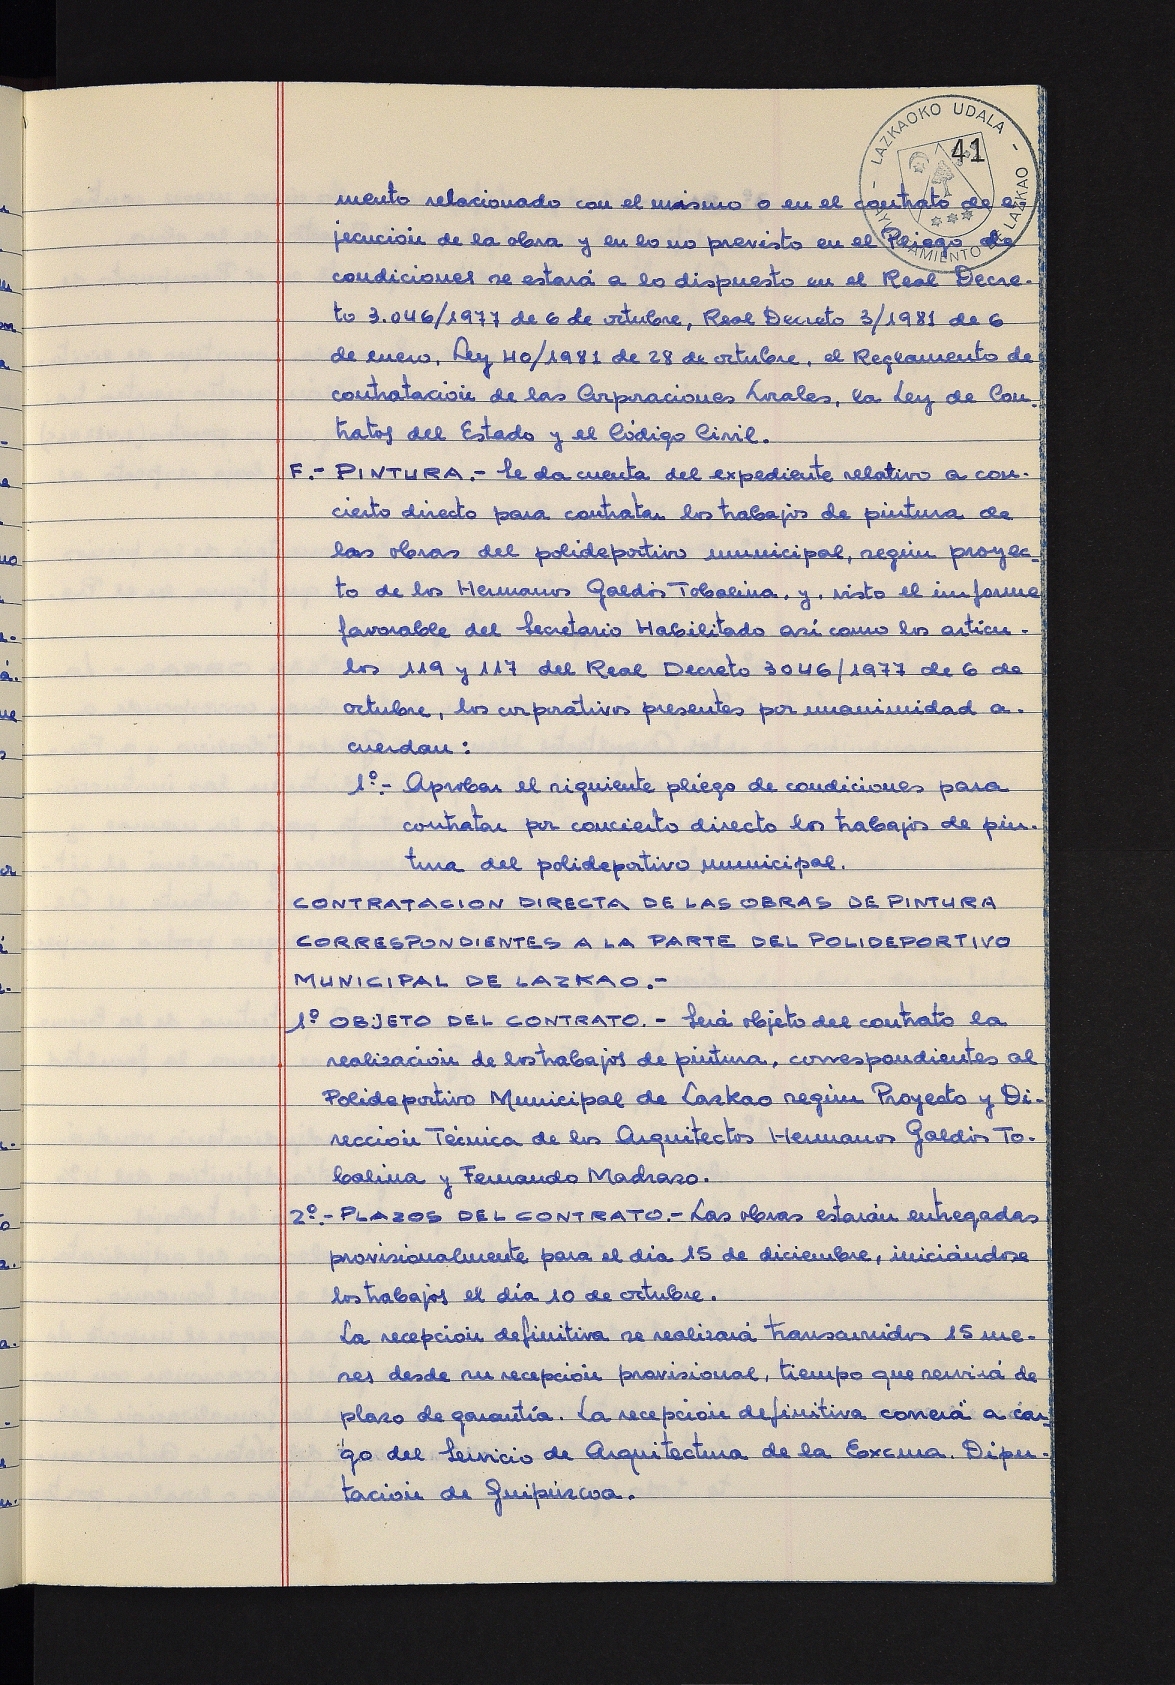 LAZKAOKO UDALA - AYUNTAMIENTO DE LAZKAO -
41
mento relacionado con el mismo o en el contrato de e-
jecución de la obra y en lo no previsto en el Pliego de
condiciones se estará a lo dispuesto en el Real Decre-
to 3.046/1977 de 6 de octubre, Real Decreto 3/1981 de 6
de enero, Ley 40/1981 de 28 de octubre, el Reglamento de
contratación de las Corporaciones Locales, la Ley de Con-
tratos del Estado y el Código Civil.
F.- PINTURA.- Se da cuenta del expediente relativo a con-
cierto directo para contratar los trabajos de pintura de
las obras del polideportivo municipal, según proyec-
to de los Hermanos Galdós Tobalina, y, visto el informe
favorable del Secretario Habilitado así como los artícu-
los 119 y 117 del Real Decreto 3046/1977 de 6 de
octubre, los corporativos presentes por unanimidad a-
cuerdan:
1º.- Aprobar el siguiente pliego de condiciones para
contratar por concierto directo los trabajos de pin-
tura del polideportivo municipal.
CONTRATACION DIRECTA DE LAS OBRAS DE PINTURA
CORRESPONDIENTES A LA PARTE DEL POLIDEPORTIVO
MUNICIPAL DE LAZKAO.-
1º OBJETO DEL CONTRATO.- Será objeto del contrato la
realización de los trabajos de pintura, correspondientes al
Polideportivo Municipal de Lazkao según Proyecto y Di-
rección Técnica de los Arquitectos Hermanos Galdós To-
balina y Fernando Madrazo.
2º.- PLAZOS DEL CONTRATO.- Las obras estarán entregadas
provisionalmente para el día 15 de diciembre, iniciándose
los trabajos el día 10 de octubre.
La recepción definitiva se realizará transcurridos 15 me-
ses desde su recepción provisional, tiempo que servirá de
plazo de garantía. La recepción definitiva correrá a car-
go del Servicio de Arquitectura de la Excma. Dipu-
tación de Guipúzcoa.